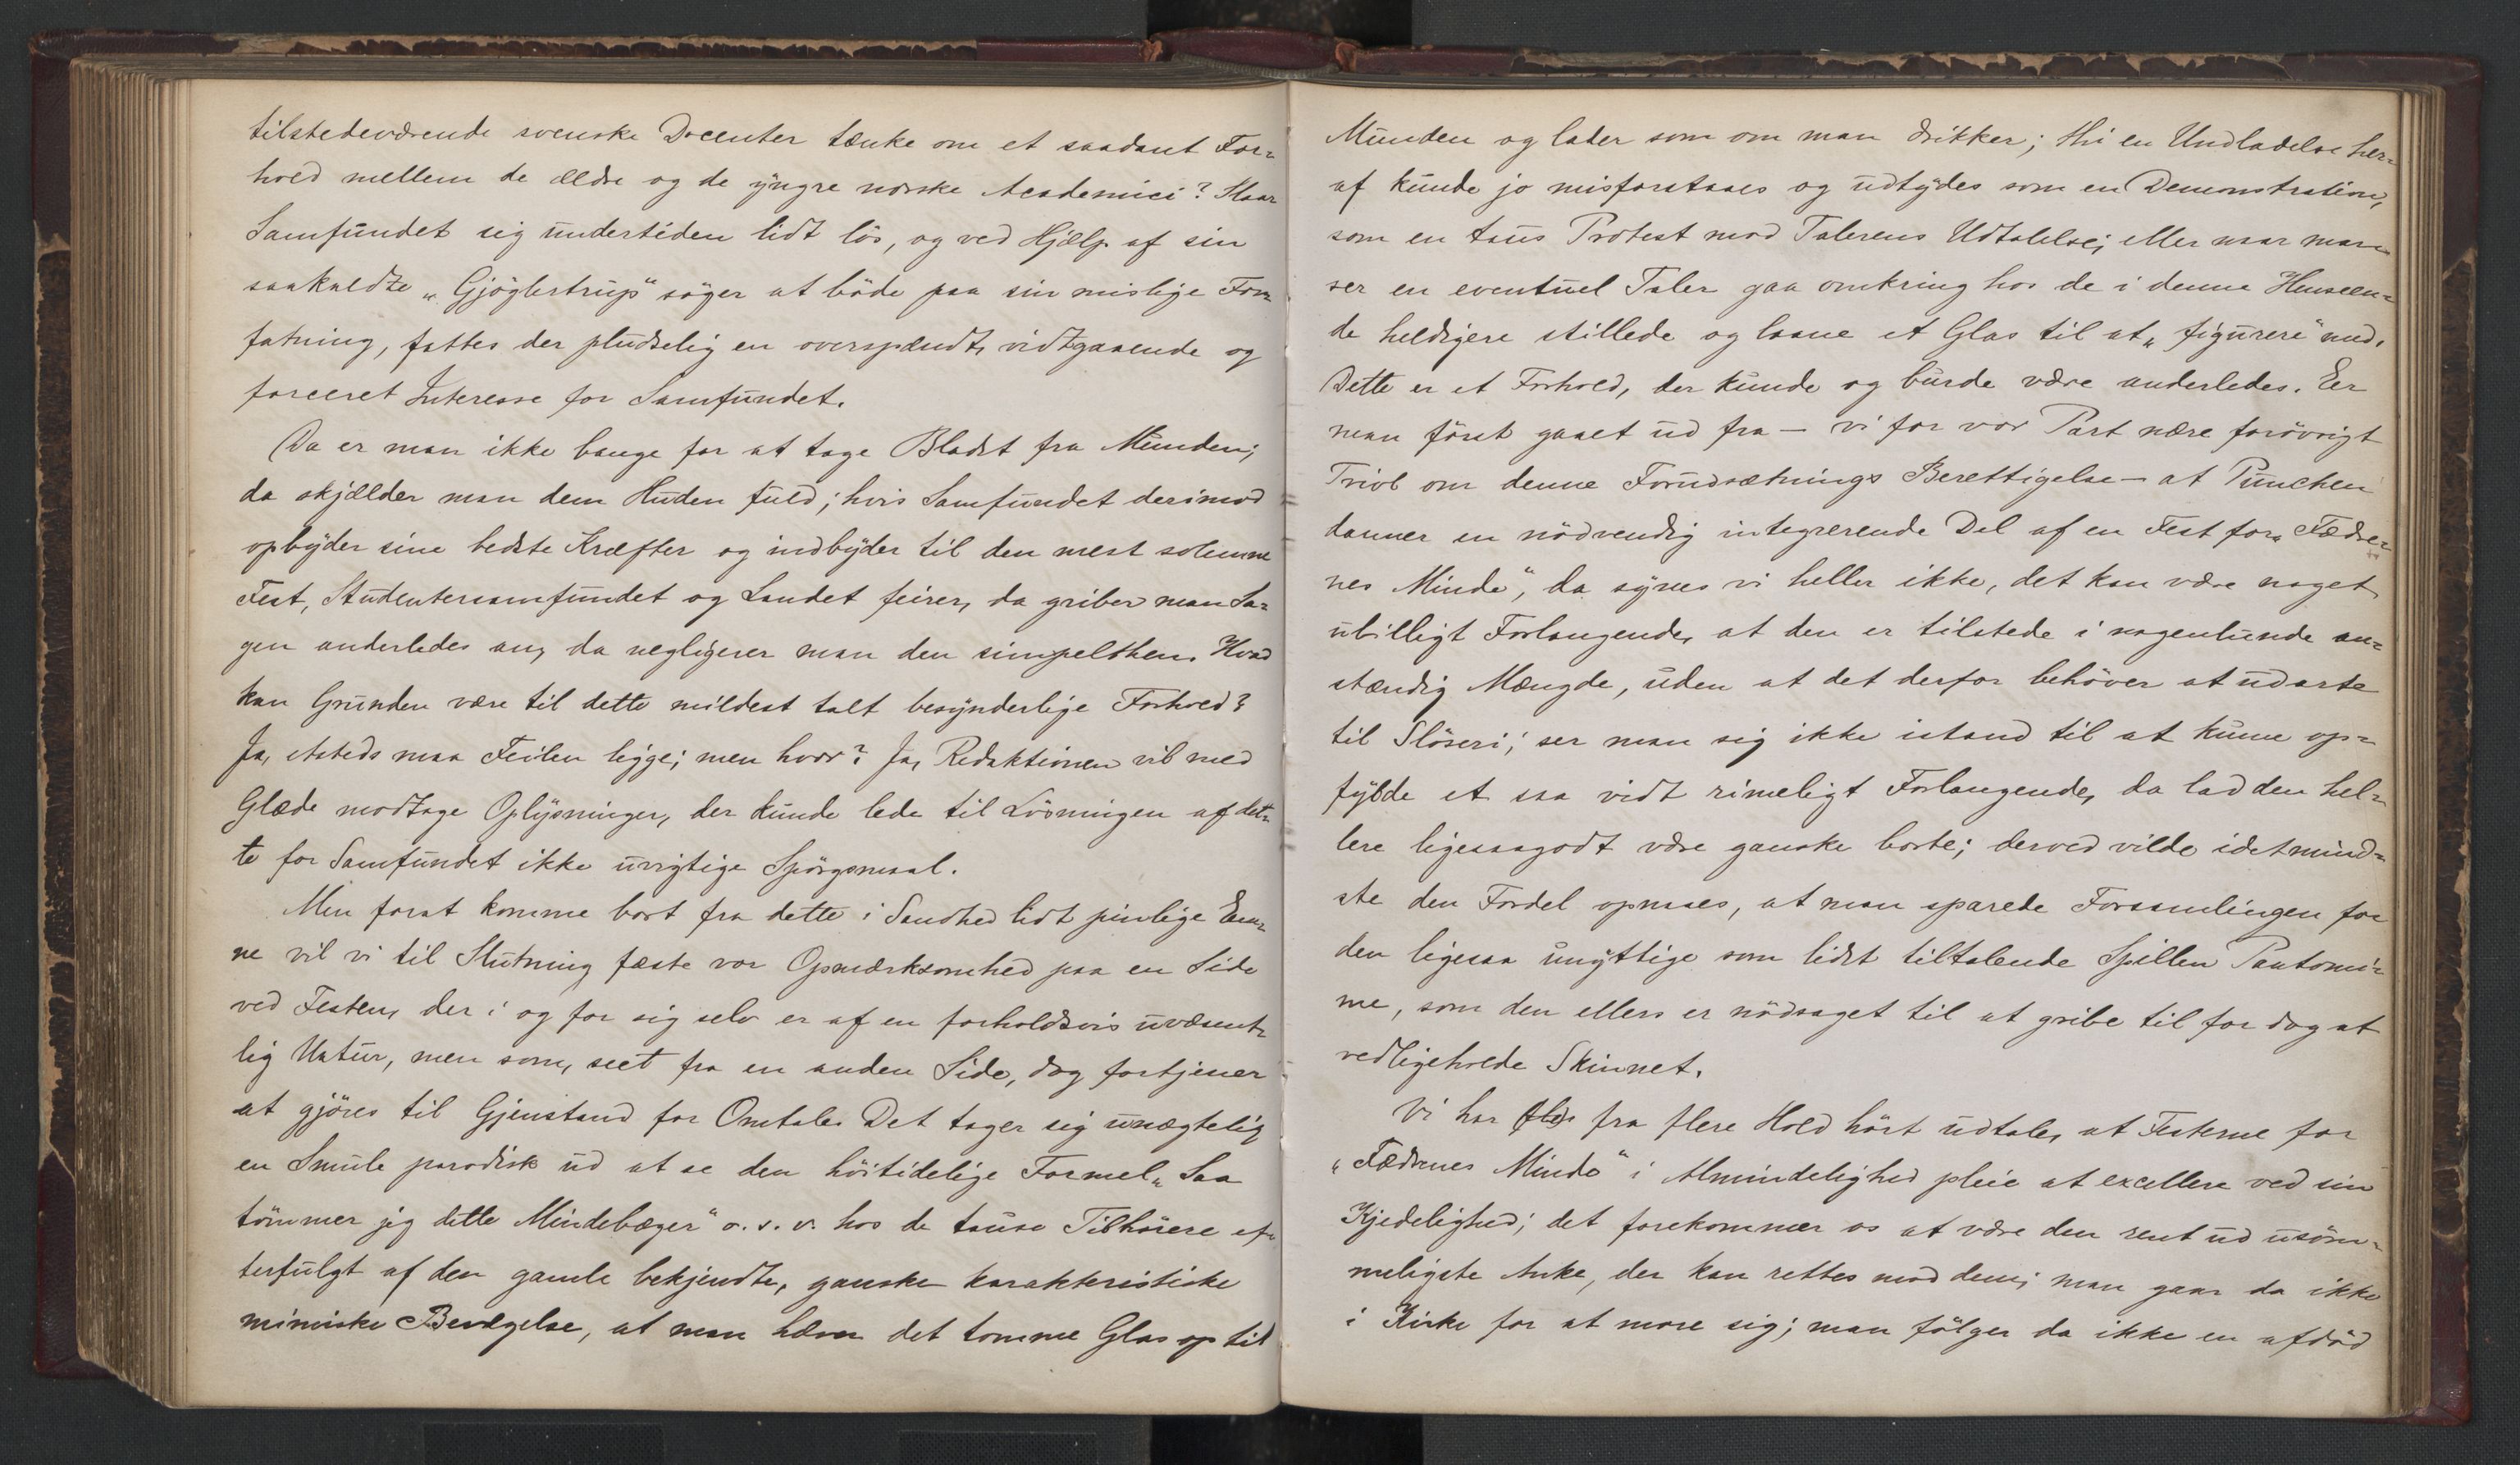 tilstedeværende svenske Docenter tænke om et saadant For-
hold mellem de ældre og de yngre norske Academici? Slaar
Samfundet sig undertiden lidt løs, og ved Hjælp af sin
saakaldte „Gjøglertrup“ søger at bøde paa sin mislige For-
fatning, fattes der pludselig en overspændt, vidtgaaende og
forceret Interesse for Samfundet.
Da er man ikke bange for at tage Bladet fra Munden;
da skjælder man dem Huden fuld; hvis Samfundet derimod
opbyder sine bedste Kræfter og indbyder til den mest solenne
Fest, Studentersamfundet og Landet feirer, da griber man Sa-
gen anderledes an, da negligerer man den simpelthen. Hvad
kan Grunden være til dette mildest talt besynderlige Forhold?
Ja, etsteds maa Feilen ligge; men hvor? Ja, Redaktionen vil med
Glæde modtage Oplysninger, der kunde lede til Løsningen af det-
te for Samfundet ikke uvigtige Spørgsmaal.
Men forat komme bort fra dette i Sandhed lidt pinlige Em-
ne vil vi til Slutning fæste vor Opmærksomhed paa en Side
ved Festen, der i og for sig selv er af en forholdsvis uvæsent-
lig Natur, men som, seet fra en anden Side, dog fortjener
at gjøres til Gjenstand for Omtale. Det tager sig unægtelig
en Smule parodisk ud at se den høitidelige Formel „Saa
tømmer jeg dette Mindebæger“ o. s. v. hos de tause Tilhørere ef-
terfulgt af den gamle bekjendte, ganske karakteristiske
mimiske Bevægelse, at man hæver det tomme Glas op til
Munden og lader som om man drikker; thi en Undladelse her-
af kunde jo misforstaaes og udtydes som en Demonstration,
som en taus Protest mod Talerens Udtalelse; eller naar man
ser en eventuel Taler gaa omkring hos de i denne Henseen-
de heldigere stillede og laane et Glas til at „figurere“ med.
Dette er et Forhold, der kunde og burde være anderledes. Er
man først gaaet ud fra — vi for vor Part nære forøvrigt
Tvivl om denne Forudsætnings Berettigelse — at Punchen
danner en nødvendig integrerende Del af en Fest for „Fædre-
nes Minde“, da synes vi heller ikke, det kan være noget
ubilligt Forlangende, at den er tilstede i nogenlunde an-
stændig Mængde, uden at det derfor behøver at udarte
til Sløseri; ser man sig ikke istand til at kunne op-
fylde et saa vidt rimeligt Forlangende, da lad den hel-
lere ligesaagodt være ganske borte; derved vilde idetmind-
ste den Fordel opnaaes, at man sparede Forsamlingen for
den ligesaa unyttige som lidet tiltalende Spillen Pantomi-
me, som den ellers er nødsaget til at gribe til for dog at
vedligeholde Skinnet.
Vi har fra flere Hold hørt udtale, at Festerne for
„Fædrenes Minde“ i Almindelighed pleie at excellere ved sin
Kjedelighed; det forekommer os at være den rent ud usøm-
meligste Anke, der kan rettes mod dem; man gaar da ikke
i Kirke for at more sig; man følger da ikke en afdød